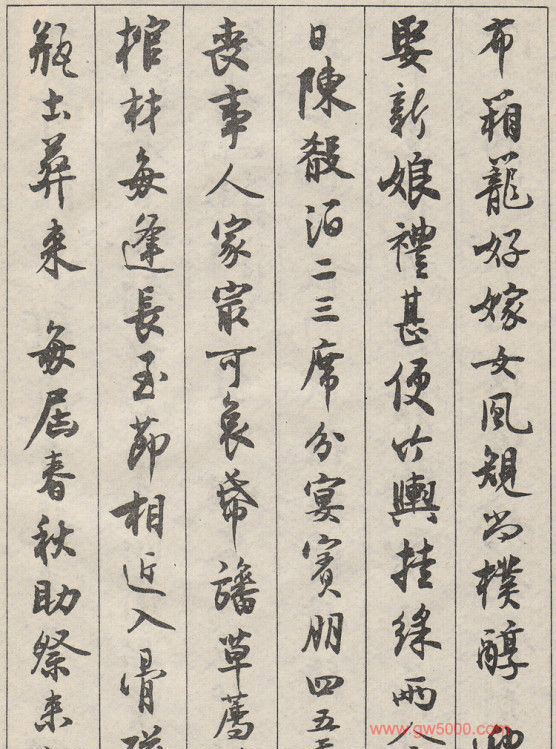 布箱籠好嫁女風規尚樸醇
娶新娘禮甚便竹輿挂綵兩
日陳殽泊二三席分宴賓朋四五
喪事人家最可哀 草薦
棺材每逢長至節相近入骨
瓶土葬來 每屆春秋助祭來
www.gw5000.com